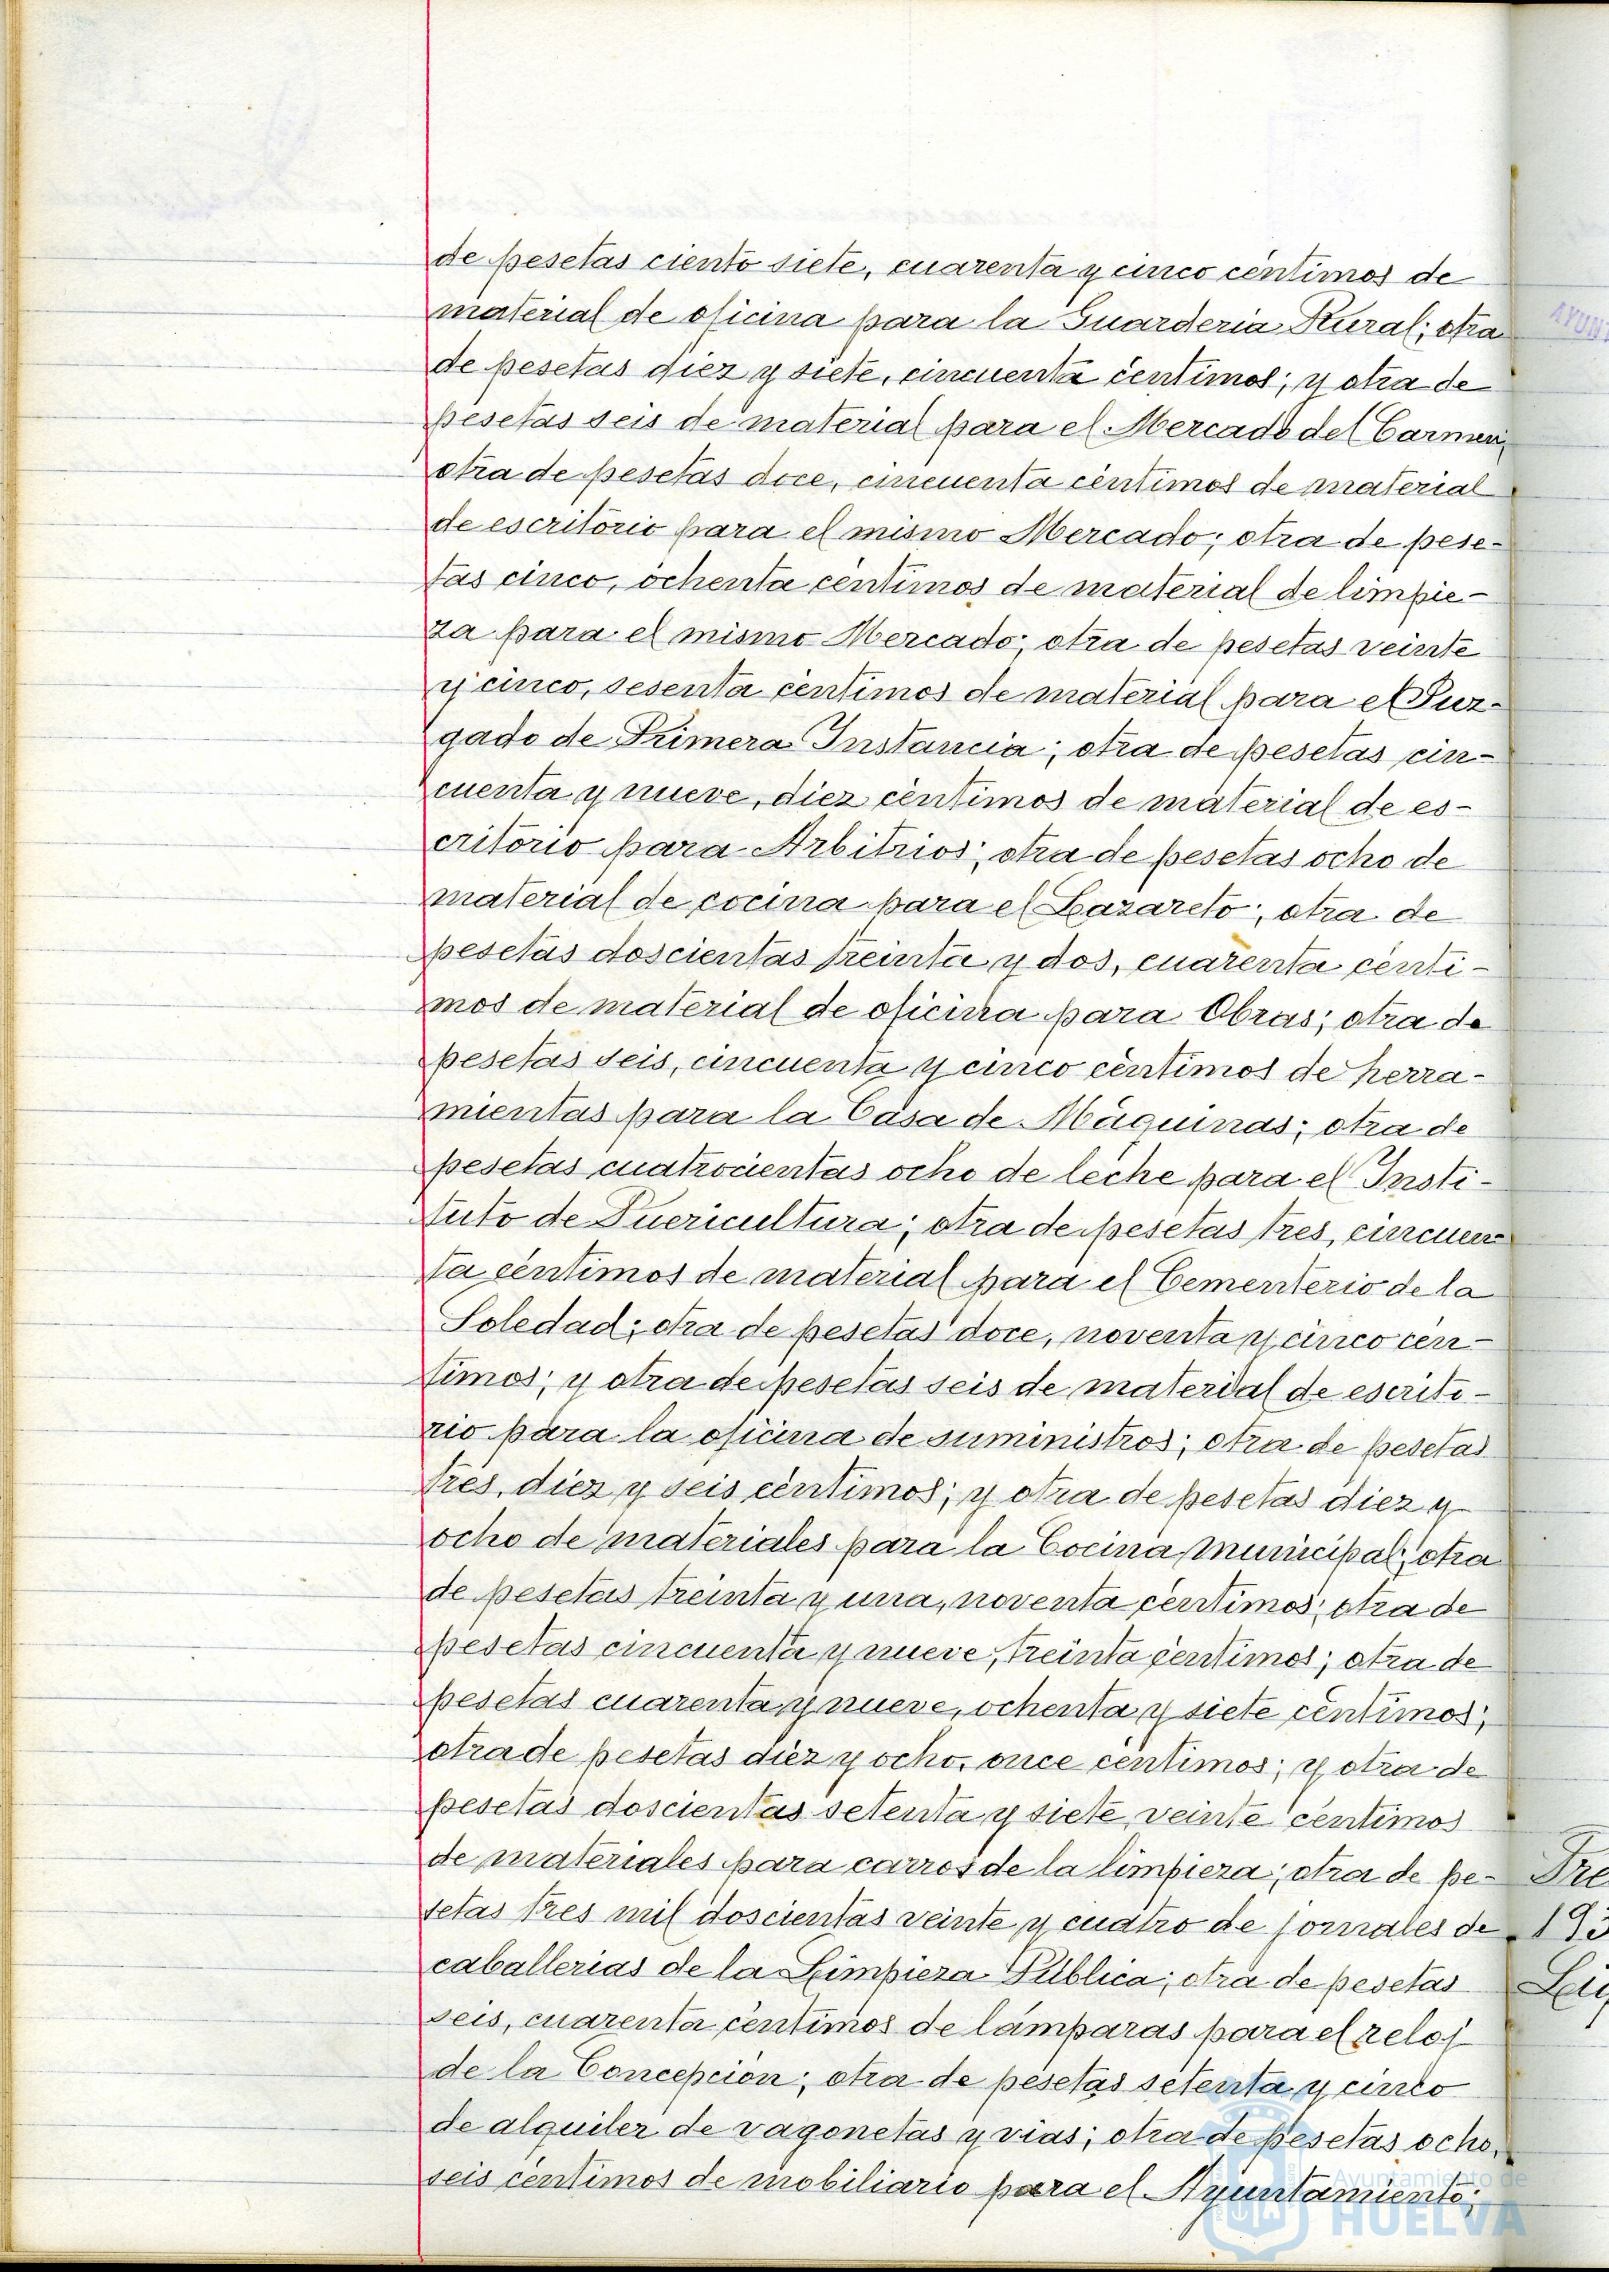 de pesetas ciento siete, cuarenta y cinco céntimos de
material de oficina para la Guarderia Rural; otra
de pesetas diez y siete, cincuenta centimos; y otra de
pesetas seis de material para el Mercado del Carmen;
otra de pesetas doce, cincuenta céntimos de material
de escritorio para el mismo Mercado; otra de pese-
tas cinco, ochenta céntimos de material de limpie-
za para el mismo Mercado; otra de pesetas veinte
y cinco, sesenta céntimos de material para el Juz-
gado de Primera Instancia; otra de pesetas cin-
cuenta y nueve, diez céntimos de material de es-
critorio para Arbitrios; otra de pesetas ocho de
material de cocina para el Lazareto; otra de
pesetas doscientas treinta y dos, cuarenta cénti-
mos de material de oficina para Obras; otra de
pesetas seis, cincuenta y cinco céntimos de herra-
mientas para la Casa de Máquinas; otra de
pesetas cuatrocientas ocho de leche para el Insti-
tuto de Puericultura; otra de pesetas tres, cincuen
ta céntimos de material para el Cementerio de la
Soledad; otra de pesetas doce, noventa y cinco cén-
timos; y otra de pesetas seis de material de escrito-
rio para la oficina de suministros; otra de pesetas
tres, diez y seis céntimos; y otra de pesetas diez y
ocho de materiales para la Cocina Municipal; otra
de pesetas treinta y una, noventa céntimos; otra de
pesetas cincuenta y nueve, treinta céntimos; otra de
pesetas cuarenta y nueve, ochenta y siete céntimos;
otra de pesetas diez y ocho, once céntimos; y otra de
pesetas doscientas setenta y siete, veinte céntimos
de materiales para carros de la limpieza; otra de pe-
setas tres mil doscientas veinte y cuatro de jornales de
caballerias de la Limpieza Pública; otra de pesetas
seis, cuarenta céntimos de lámparas para el reloj
de la Concepción; otra de pesetas setenta y cinco
de alquiler de vagonetas y vias; otra de pesetas ocho,
seis centimos de mobiliario para el Ayuntamiento;
Ayuntamiento de
HUELVA